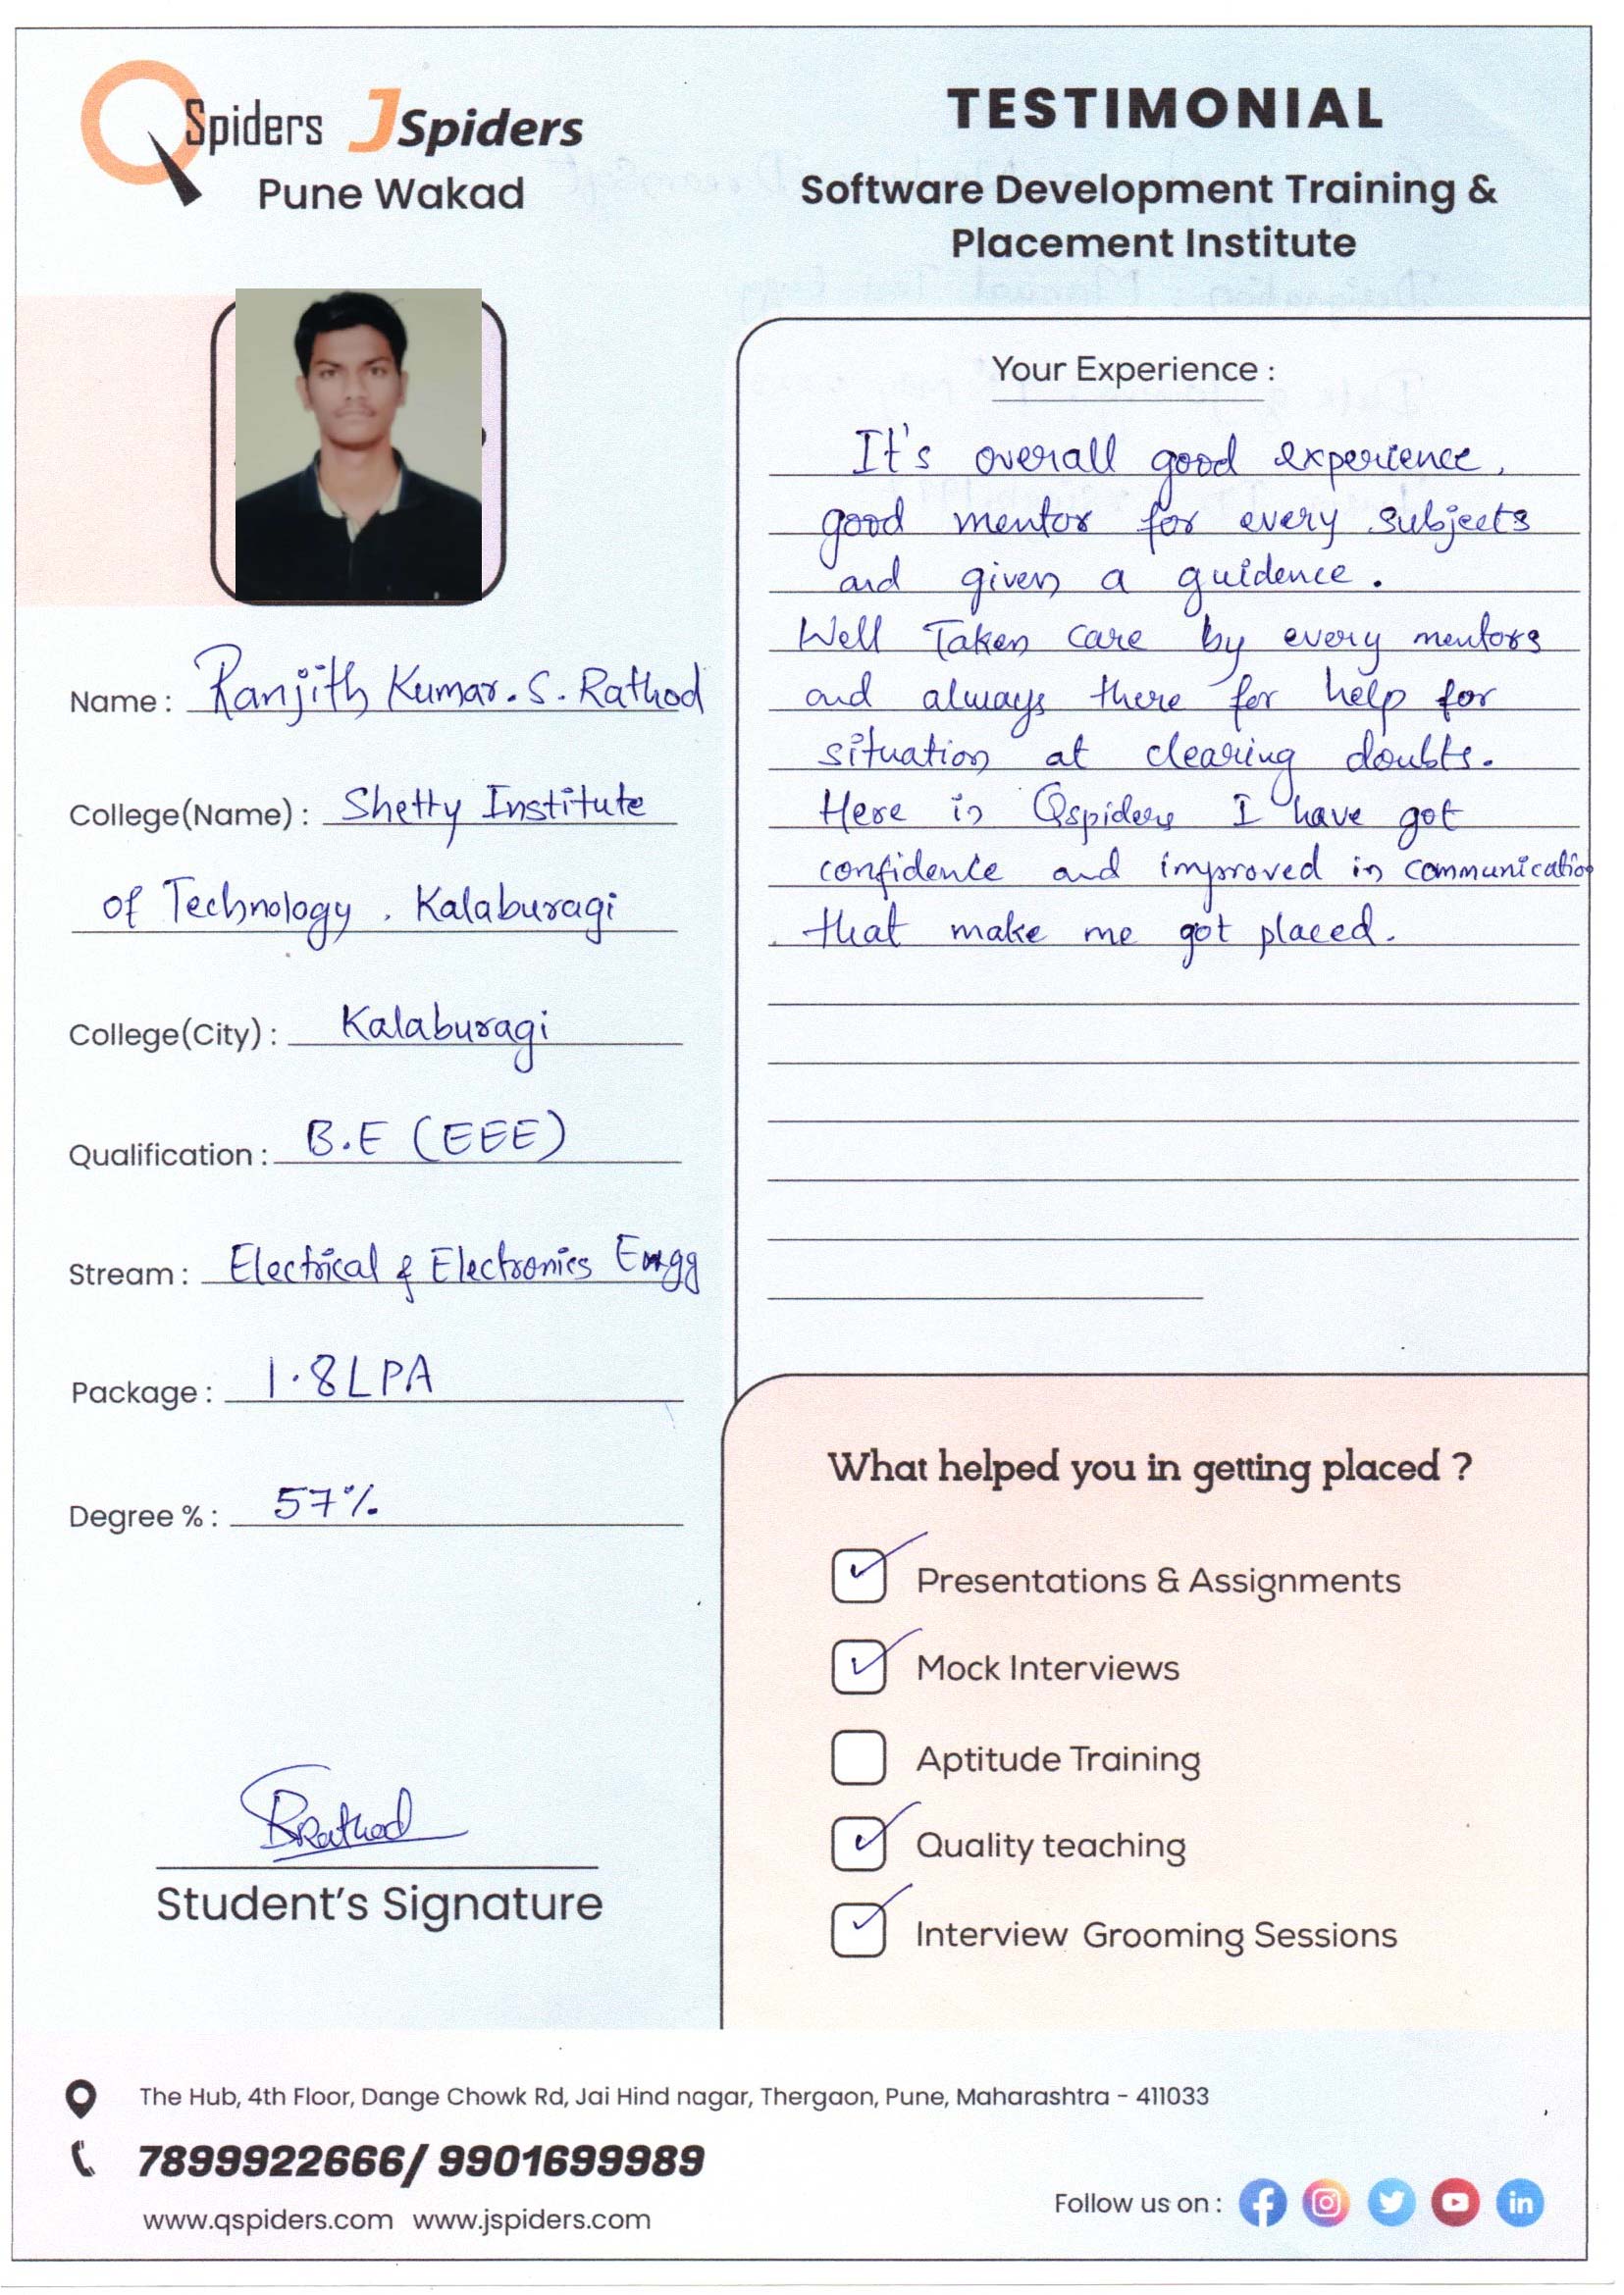 QSpiders JSpiders
Pune Wakad
TESTIMONIAL
Software Development Training &
Placement Institute
Name : Ranjith Kumar.S.Rathod
College(Name) : Shetty Institute
of Technology . Kalaburagi
College(City) : Kalaburagi
Qualification : B.E (EEE)
Stream : Electrical & Electronics Engg
Package : 1.8LPA
Degree % : 57%
SRathod
Student's Signature
Your Experience :
It's overall good experience,
good mentor for every subjects
and given a guidence .
Well Taken care by every mentors
and always there for help for
situation at clearing doubts.
Here in Qspiders I have got
confidence and improved in communication
that make me got placed.
What helped you in getting placed ?
Presentations & Assignments
Mock Interviews
Aptitude Training
Quality teaching
Interview Grooming Sessions
The Hub, 4th Floor, Dange Chowk Rd, Jai Hind nagar, Thergaon, Pune, Maharashtra - 411033
7899922666/ 9901699989
www.qspiders.com www.jspiders.com
Follow us on :